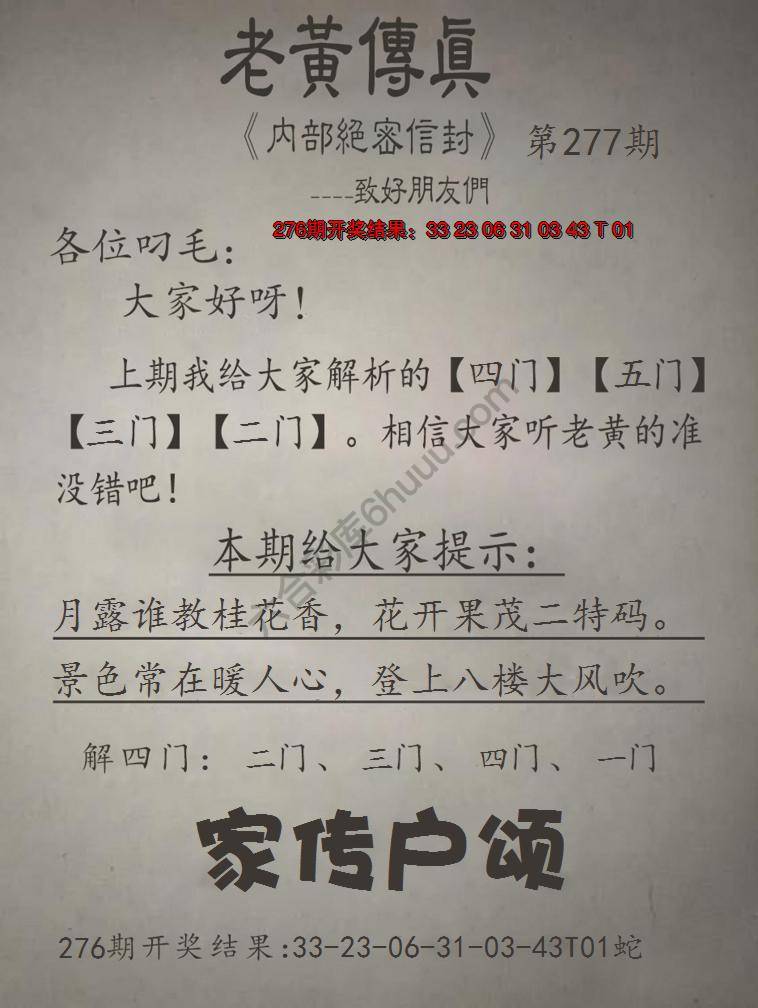 老黃傳眞
《內部絕密信封》 第277期
----致好朋友們
276期开奖结果：33 23 06 31 03 43 T 01
各位叼毛：
大家好呀！
上期我给大家解析的【四门】【五门】
【三门】【二门】。相信大家听老黄的准
没错吧！
六合彩库6huuu.com
本期给大家提示：
月露谁教桂花香，花开果茂二特码。
景色常在暖人心，登上八楼大风吹。
解四门：二门、三门、四门、一门
家传户颂
276期开奖结果:33-23-06-31-03-43T01蛇